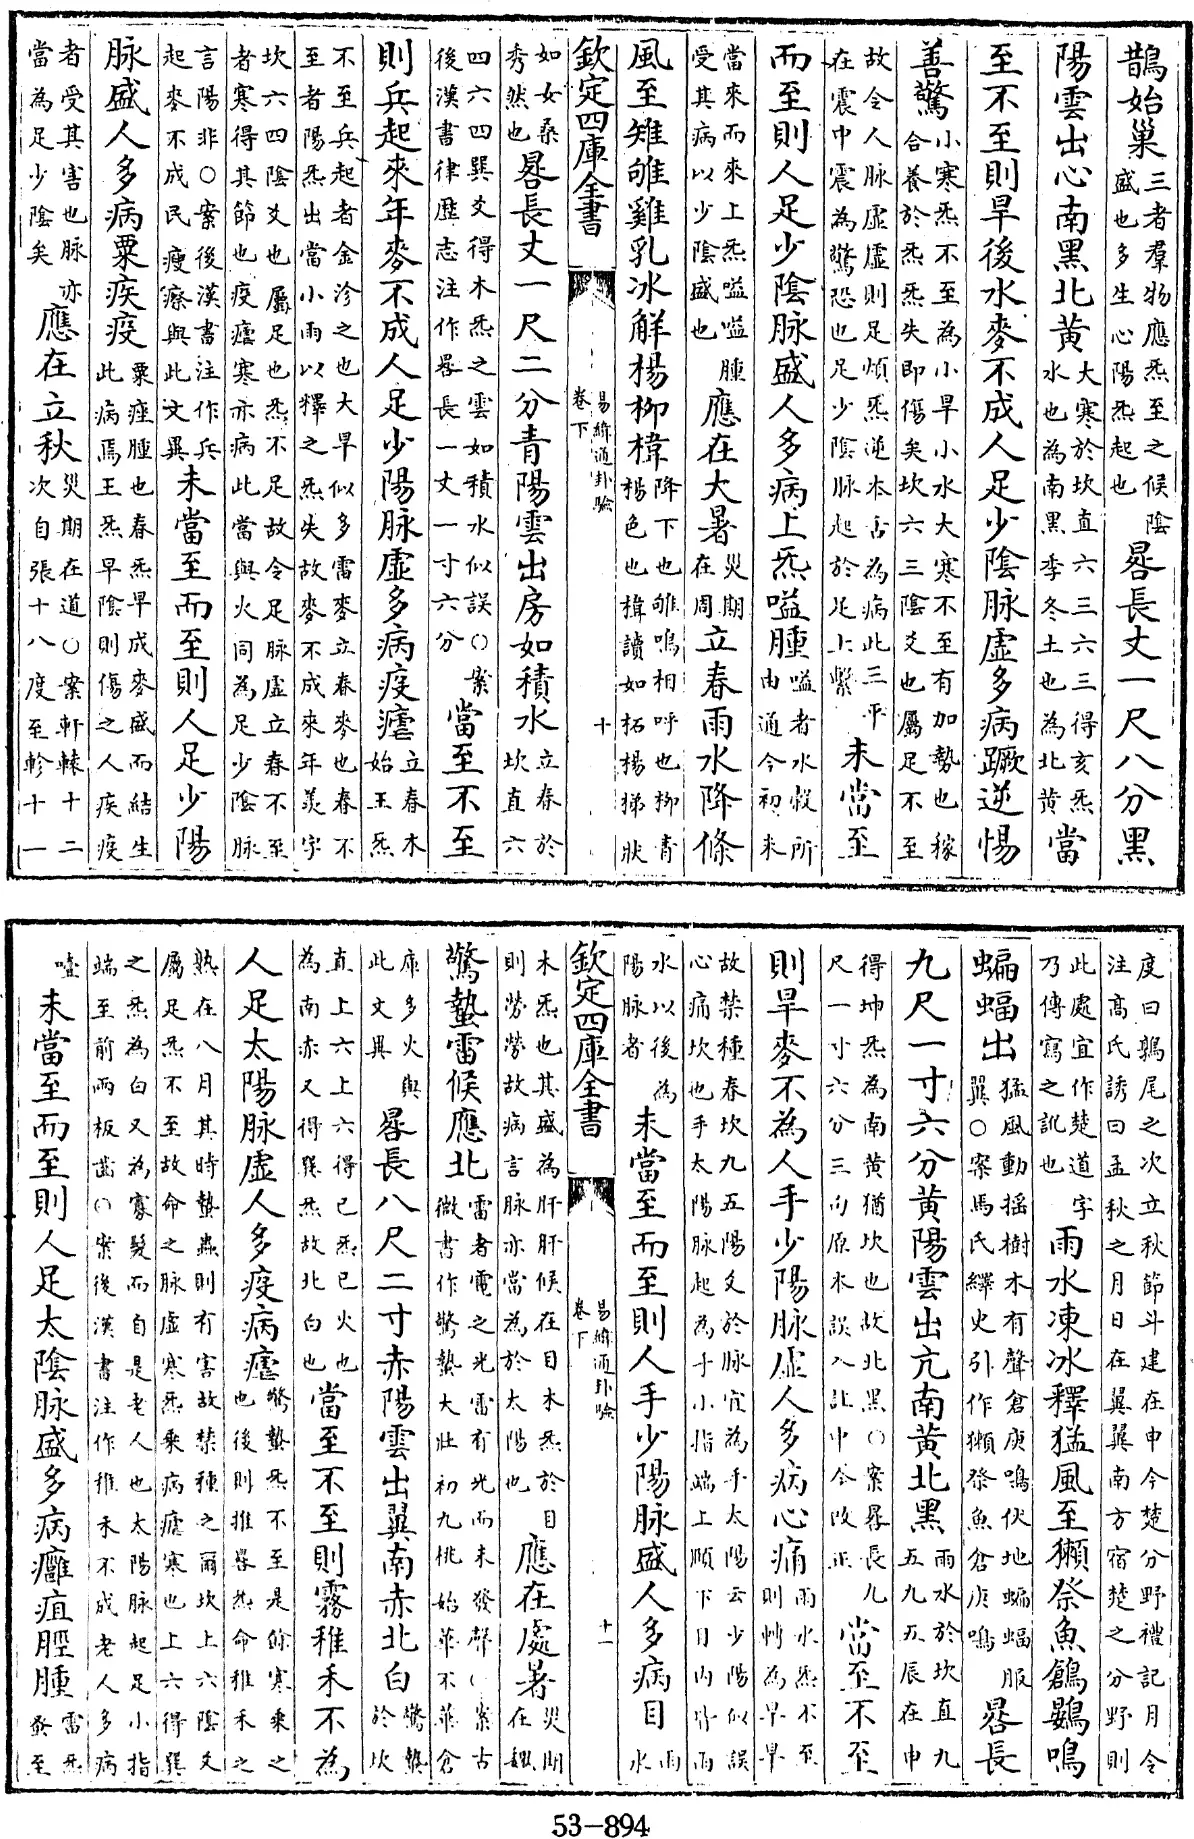 鵲始巢三者羣物應炁至之候陰盛也多生心陽炁起也晷長丈一尺八分黑
陽雲出心南黑北黃大寒於坎直六三六三得亥炁水也為南黑季冬土也為北黃當
至不至則旱後水麥不成人足少陰脈虛多病蹶逆惕
善驚小寒炁不至為小旱小水大寒不至有加勢也稼合養於炁炁失即傷矣坎六三陰爻也屬足不至
故令人脈虛虛則足煩炁逆本舌為病此三平在震中震為驚恐也足少陰脈起於足上繫未當至
而至則人足少陰脈盛人多病上炁嗌腫嗌者水穀所由通今初來
當來而來上炁嗌嗌腫受其病以少陰盛也應在大暑災期在周立春雨水降條
風至雉雊雞乳冰解楊柳椲降下也雊鳴相呼也柳青楊色也椲讀如柘楊稊狀
欽定四庫全書 易緯通卦驗 卷下 十
如女桑秀然也晷長丈一尺二分青陽雲出房如積水立春於坎直六
四六四巽爻得木炁之雲如積水似誤○案後漢書律歷志注作晷長一丈一寸六分當至不至
則兵起來年麥不成人足少陽脈虛多病疫瘧立春木始王炁
不至兵起者金沴之也大旱似多雷麥立春麥也春不至者陽炁出當小雨以釋之炁失故麥不成來年羨字
坎六四陰爻也屬足也炁不足故令足脈虛立春不至者寒得其節也疫瘧寒亦病此當與火同為足少陰脈
言陽非○案後漢書注作兵起麥不成民瘦瘵與此文異未當至而至則人足少陽
脈盛人多病粟疾疫粟痤腫也春炁早成麥盛而結生此病焉王炁早陰則傷之人疾疫
者受其害也脈亦當為足少陰矣應在立秋災期在道○案軒轅十二次自張十八度至軫十一
度曰鶉尾之次立秋節斗建在申今楚分野禮記月令注高氏誘曰孟秋之月日在翼翼南方宿楚之分野則
此處宜作楚道字乃傳寫之訛也雨水凍冰釋猛風至獺祭魚鶬鷃鳴
蝙蝠出猛風動搖樹木有聲倉庚鳴伏地蝙蝠服翼○案馬氏繹史引作獺祭魚倉庚鳴晷長
九尺一寸六分黃陽雲出亢南黃北黑雨水於坎直九五九五辰在申
得坤炁為南黃猶坎也故北黑○案晷長九尺一寸六分三句原本誤入註中今改正當至不至
則旱麥不為人手少陽脈虛人多病心痛雨水炁不至則轉為旱旱
故禁種春坎九五陽爻於脈宜為手太陽云少陽似誤心痛坎也手太陽脈起為手小指端上順下目內眥雨
水以後為陽脈者未當至而至則人手少陽脈盛人多病目雨水
欽定四庫全書 易緯通卦驗 卷下 十一
木炁也其盛為肝肝候在目木炁於目則勞勞故病言脈亦當為於太陽也應在處暑災期在魏
驚蟄雷候應北雷者電之光雷有光而未發聲○案古微書作驚蟄大壯初九桃始華不華倉
庫多火與此文異晷長八尺二寸赤陽雲出翼南赤北白驚蟄於坎
直上六上六得巳炁巳火也為南赤又得巽炁故北白也當至不至則霧稚禾不為
人足太陽脈虛人多疫病瘧驚蟄炁不至是餘寒乘之也後則推晷炁命稚禾之
熟在八月其時蟄蟲則有害故禁種之爾坎上六陰爻屬足炁不至故命之脈虛寒炁乘病瘧寒也上六得巽
之炁為白又為寡髮而自是老人也太陽脈起足小指端至前兩板齒○案後漢書注作稚禾不成老人多病
嚏未當至而至則人足太陰脈盛多病癰疽脛腫雷炁蚤至